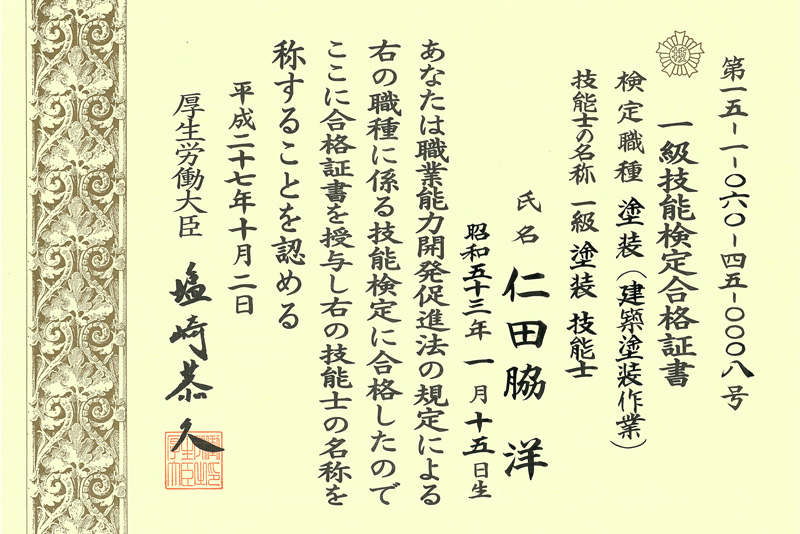 第一五－一－〇六〇－四五－〇〇〇八号
一級技能検定合格証書
検定職種 塗装（建築塗装作業）
技能士の名称 一級 塗装 技能士
氏名 仁田脇 洋
昭和五十三年 一月十五日生
あなたは職業能力開発促進法の規定による
右の職種に係る技能検定に合格したので
ここに合格証書を授与し右の技能士の名称を
称することを認める
平成二十七年十月二日
厚生労働大臣 塩崎恭久